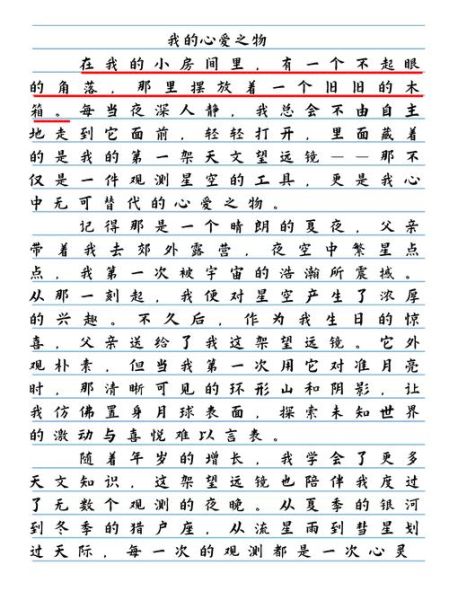 我的心爱之物
在我的小房间里，有一个不起眼
的角落，那里摆放着一个旧旧的木
箱。每当夜深人静，我总会不由自主
地走到它面前，轻轻打开，里面藏着
的是我的第一架天文望远镜——那不
仅是一件观测星空的工具，更是我心
中无可替代的心爱之物。
记得那是一个晴朗的夏夜，父亲
带着我去郊外露营，夜空中繁星点
点，我第一次被宇宙的浩瀚所震撼。
从那一刻起，我便对星空产生了浓厚
的兴趣。不久后，作为我生日的惊
喜，父亲送给了我这架望远镜。它外
观朴素，但当我第一次用它对准月亮
时，那清晰可见的环形山和阴影，让
我仿佛置身月球表面，探索未知世界
的激动与喜悦难以言表。
随着年岁的增长，我学会了更多
天文知识，这架望远镜也陪伴我度过
了无数个观测的夜晚。从夏季的银河
到冬季的猎户座，从流星雨到彗星划
过天际，每一次的观测都是一次心灵